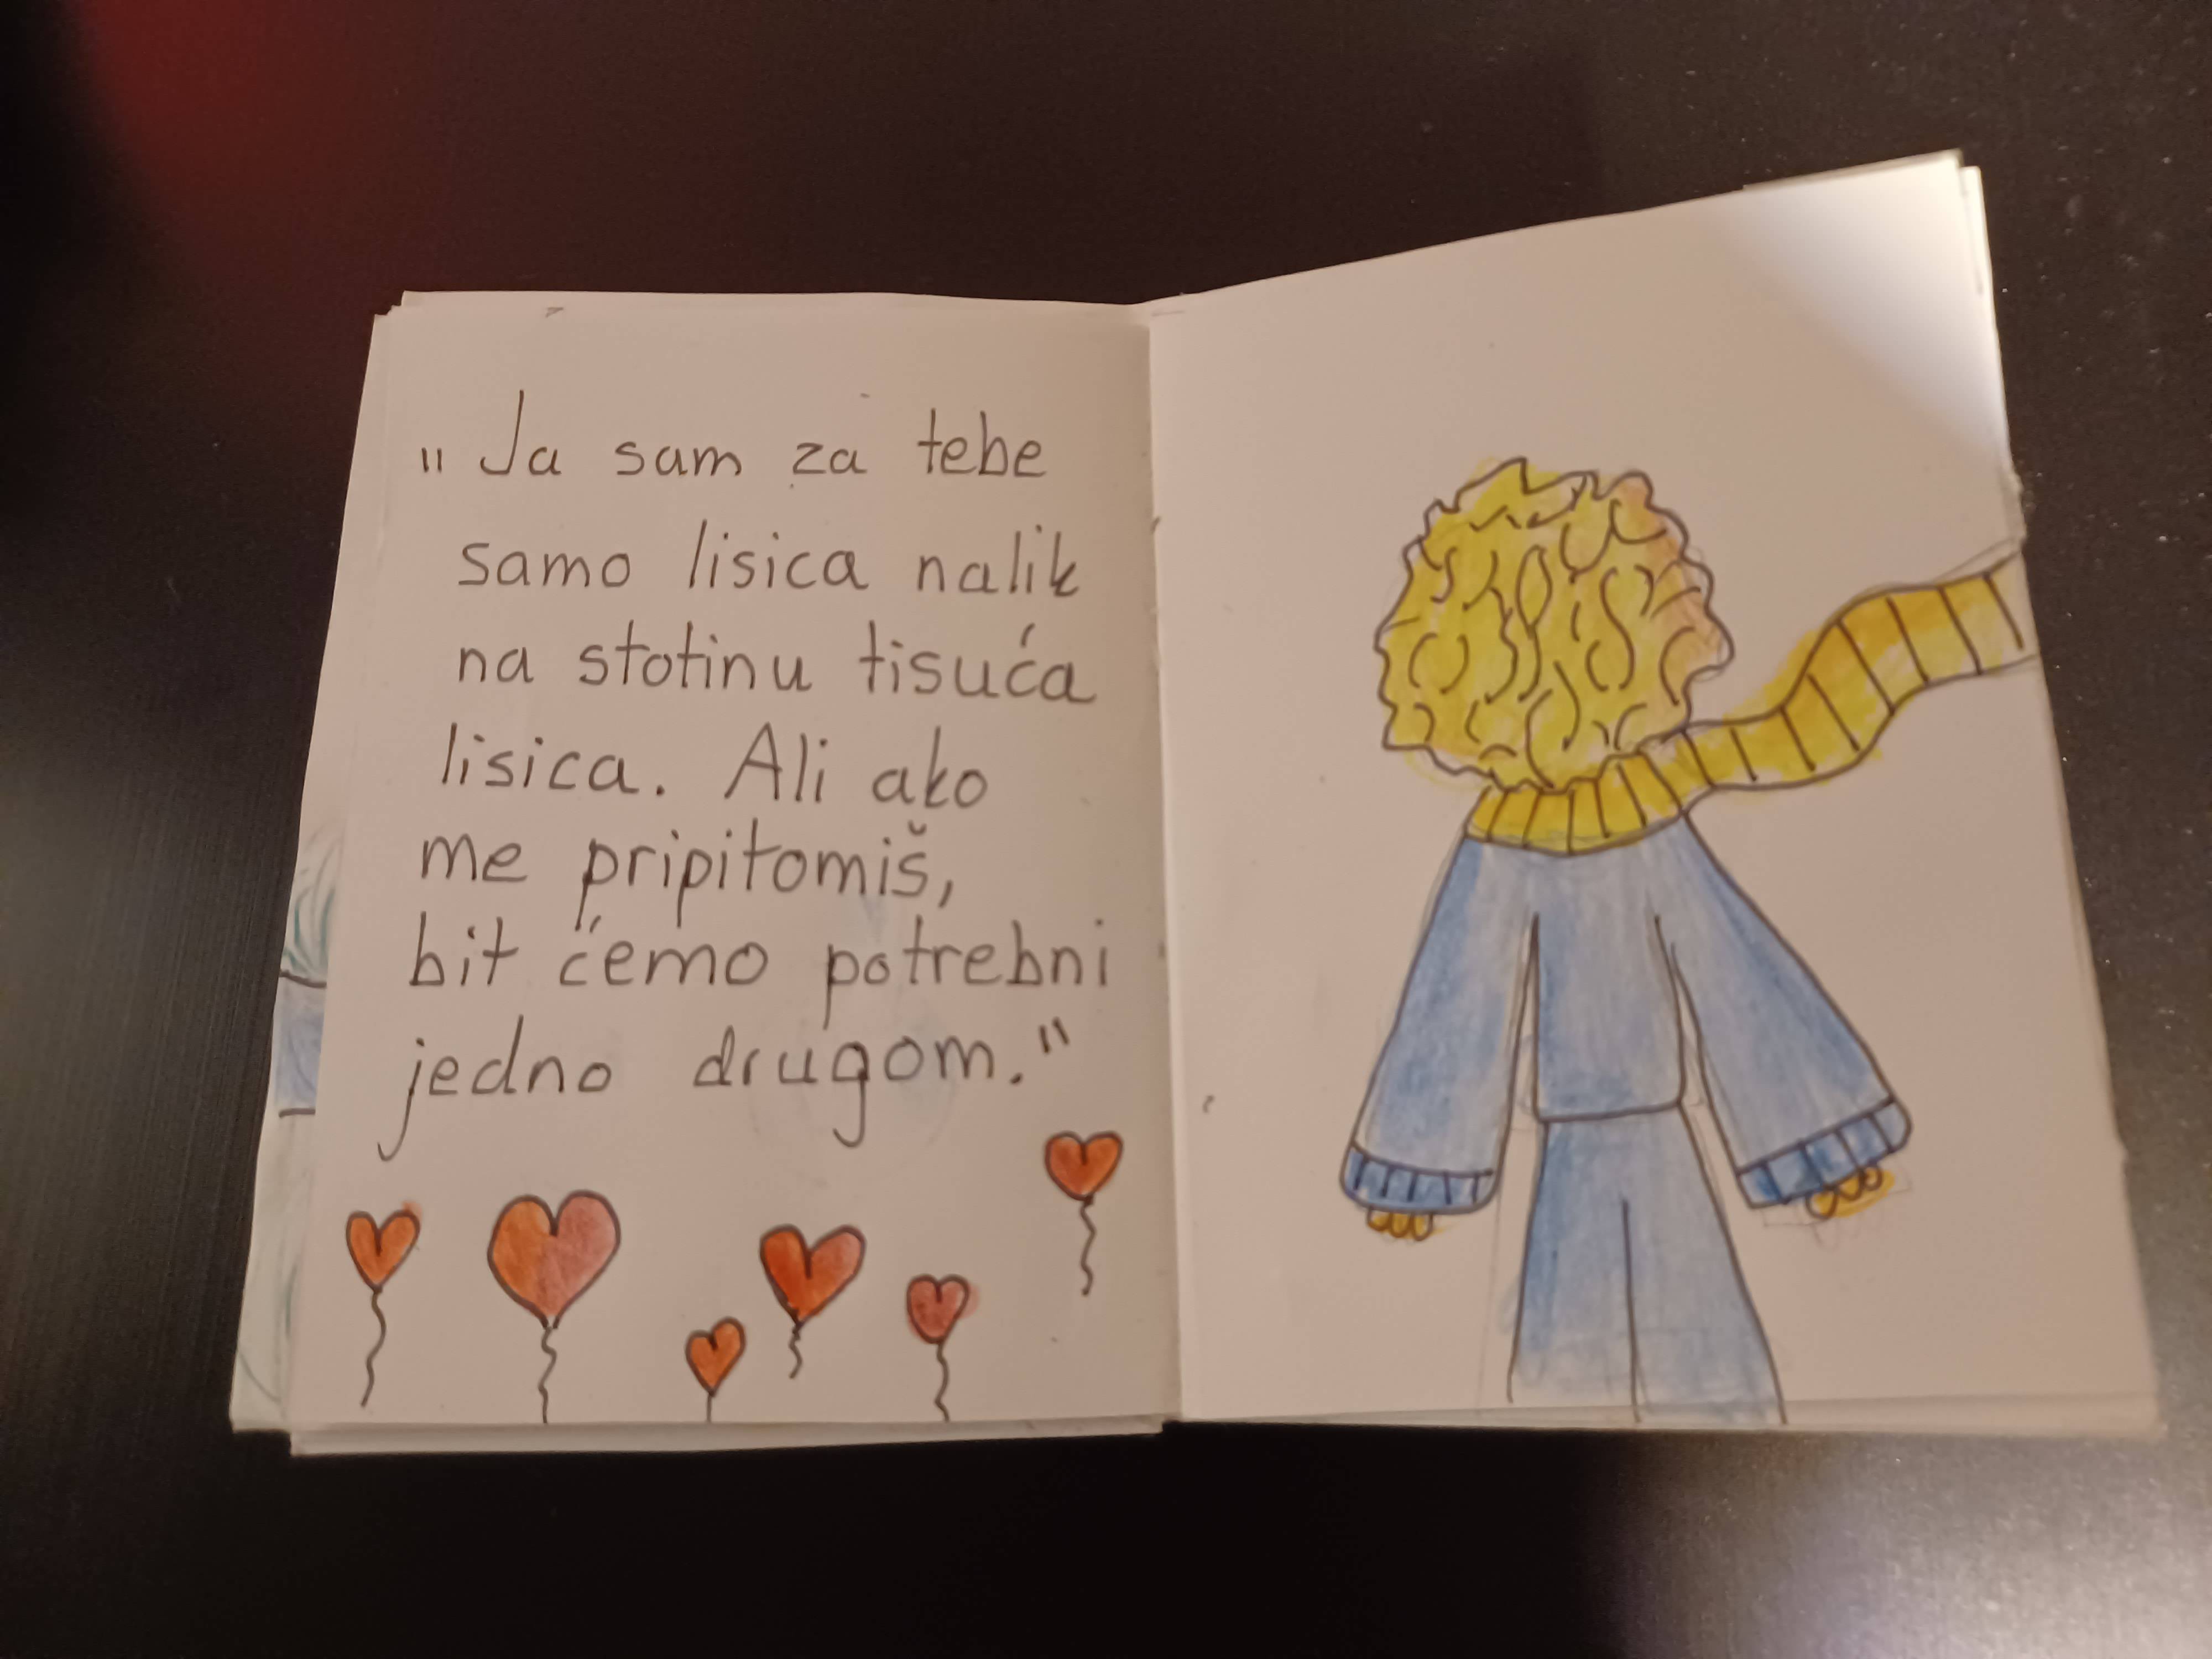 „Ja sam za tebe
samo lisica nalik
na stotinu tisuća
lisica. Ali ako
me pripitomiš,
bit ćemo potrebni
jedno drugom."